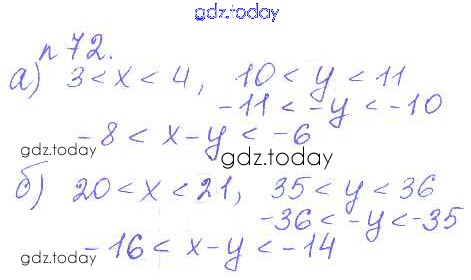 gdz.today
n 72.
а) 3 < x < 4, 10 < y < 11
-11 < -y < -10
-8 < x-y < -6
gdz.today
б) 20 < x < 21, 35 < y < 36
-36 < -y < -35
gdz.today
-16 < x-y < -14
gdz.today
gdz.today